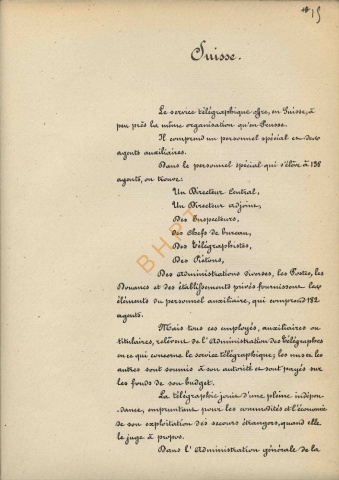 15
Suisse.
Le service télégraphique offre, en Suisse, à
peu près la même organisation qu'en Prusse.
Il comprend un personnel spécial et des
agents auxiliaires.
Dans le personnel spécial qui s'élève à 138
agents, on trouve:
Un Directeur Central,
Un Directeur adjoint,
Des Inspecteurs,
Des Chefs de bureau,
Des Télégraphistes,
Des Piétons,
Des administrations diverses, les Postes, les
Douanes et des établissements privés fournissent les
éléments du personnel auxiliaire, qui comprend 182
agents.
Mais tous ces employés, auxiliaires ou
titulaires, relèvent de l'Administration des Télégraphes
en ce qui concerne le service télégraphique; les uns et les
autres sont soumis à son autorité et sont payés sur
les fonds de son budget.
La télégraphie jouit d'une pleine indépen-
dance, empruntant pour les commodités et l'économie
de son exploitation des secours étrangers, quand elle
le juge à propos.
Dans l'Administration générale de la
BHPT